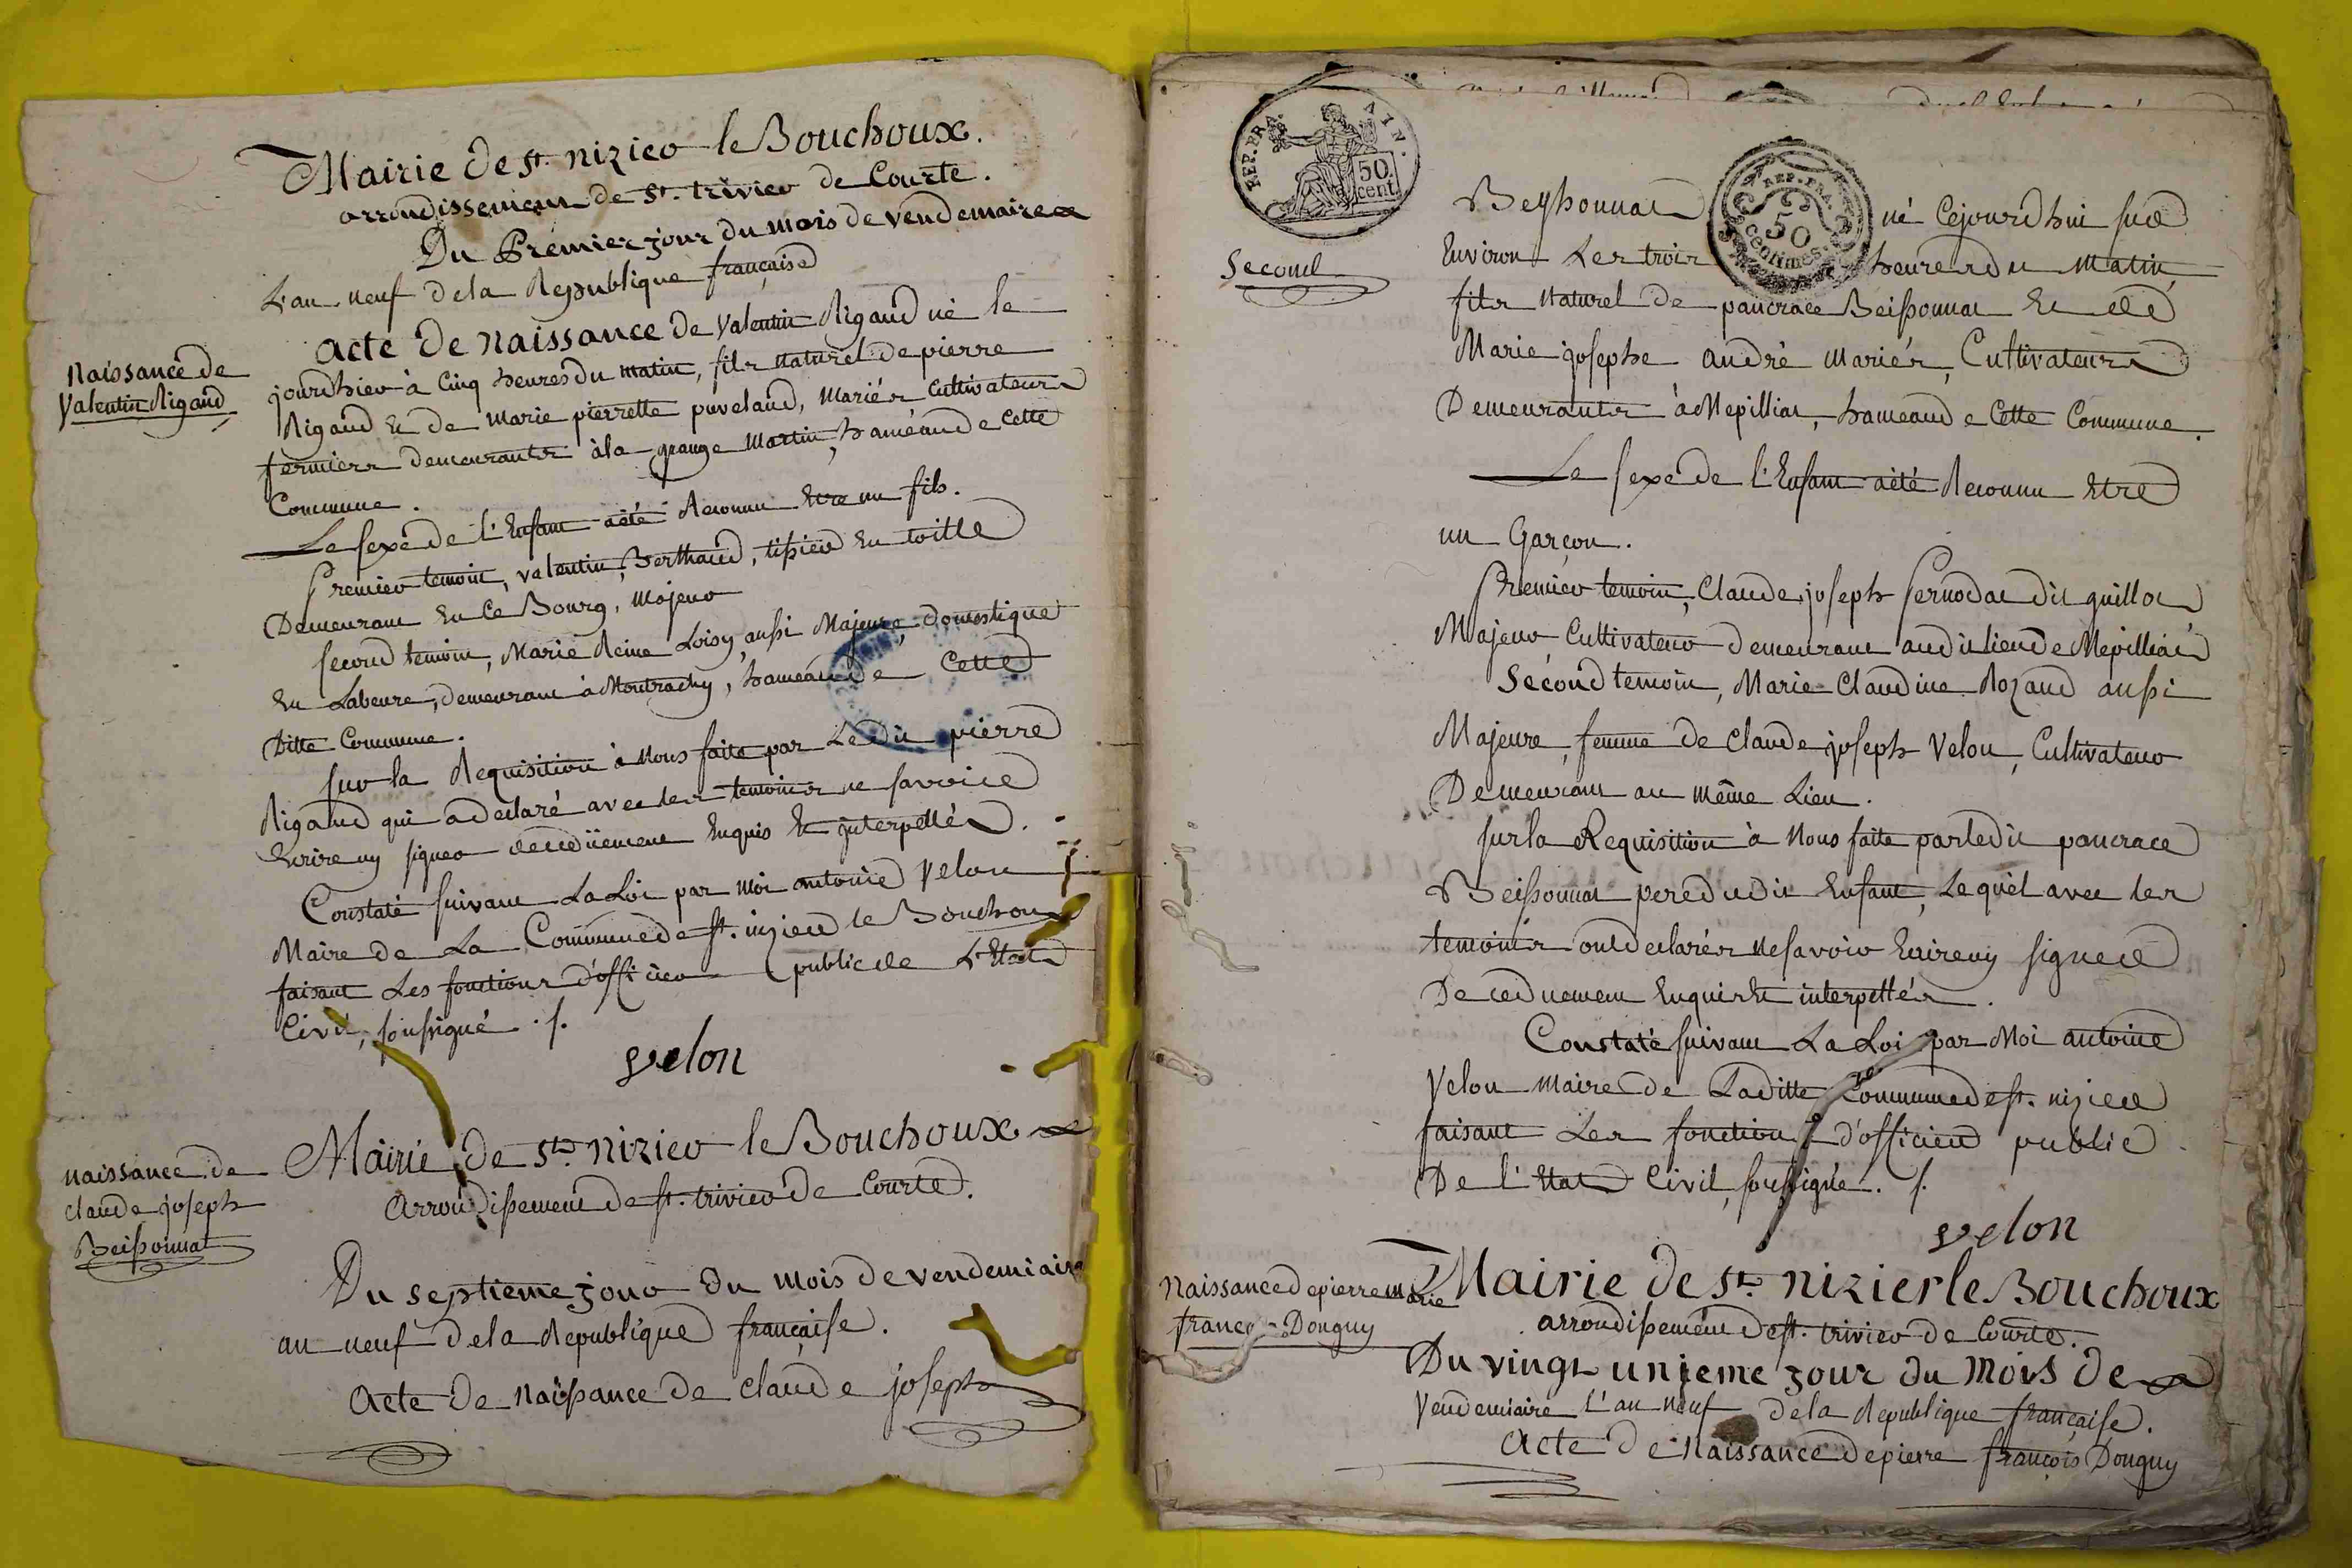 Mairie de st. nizier le Bouchoux.
arrondissement de st. trivier de Courte.
Du Premier jour du mois de vendemaire
L'an neuf de la Republique française
Naissance de
Valentin Rigaud
acte de Naissance de Valentin Rigaud né le
jourdhier à Cinq heures du matin, fils naturel de pierre
Rigaud et de Marie pierrette puvelaud, Mariés Cultivateurs
fermiers demeurants à la grange Martin, hameau de Cette
Commune.
Le sexe de l'Enfant aété Reconnu Etre un fils.
Premier temoin, valentin Berthaud, tissier En toille
Demeurant En Ce Bourg, Majeur
second temoin, Marie Reine Loisy, aussi Majeure, domestique
En Labeure, demeurant à Montrachy, hameau de Cette
Ditte Commune.
sur la Requisition à Nous faite par Le dit pierre
Rigaud qui adeclaré avec les temoins ne savoir
Ecrire ny signer de ce düement Enquis Et interpellés.
Constaté suivant La Loi par Moi antoine Velon
Maire de La Commune de st. nizier le Bouchoux
faisant Les fonctions d'officier public de L'Etat
Civil, soussigné ./.
velon
naissance de
claude joseph
Beissonnat
Mairie de st. nizier le Bouchoux
Arrondissement de st. trivier de Courte.
Du septieme jour du mois de vendemiaire
an neuf dela Republique française.
Acte de Naissance de claude joseph
REP. FRA. 50 cent.
Second
REP. FRA. 50 centimes
Beyssonnat né Cejourdhui sur
Environ Les trois heures du Matin
fils naturel de pancrace Beissonnat Et de
Marie josephe andré Mariés, Cultivateurs
Demeurants à Mepilliat, hameau de Cette Commune.
Le sexe de l'Enfant aété Reconnu Etre
un Garçon.
Premier temoin, Claude joseph pernodat dit guillot
Majeur Cultivateur demeurant audit lieu de Mepilliat
Second temoin, Marie Claudine Rozand aussi
Majeure, femme de Claude joseph Velon, Cultivateur
Demeurant au même Lieu.
sur la Requisition à Nous faite par ledit pancrace
Beissonnat pere dudit Enfant, Lequel avec les
temoins ont declarés ne savoir Ecrire ny signer
De ce duement Enquis Et interpellés.
Constaté suivant La Loi par Moi antoine
Velon Maire de Laditte Commune de st. nizier
faisant Les fonctions d'officier public
De l'Etat Civil, soussigné. /.
velon
Naissance de pierre Marie
françois Donguy
Mairie de st. nizier le Bouchoux
arrondissement de st. trivier de Courte.
Du vingt unieme jour du Mois de
Vendemiaire l'an Neuf dela Republique française.
Acte de Naissance de pierre françois Donguy